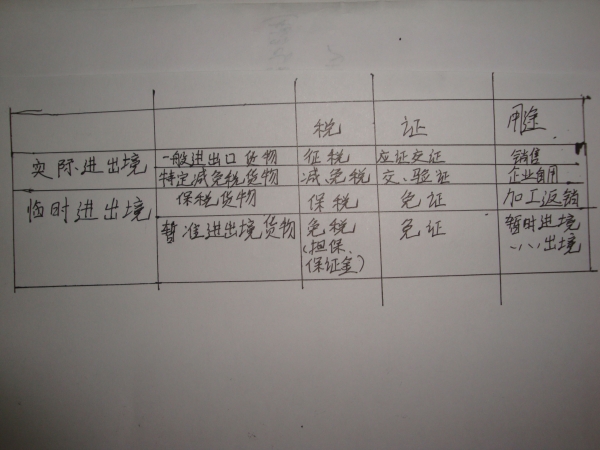 税 证 用途
实际进出境 一般进出口货物 征税 应证交证 销售
特定减免税货物 减、免税 交、验证 企业自用
临时进出境 保税货物 保税 免证 加工返销
暂准进出境货物 免税 免证 暂时进境
(担保、 〃〃出境
保证金)